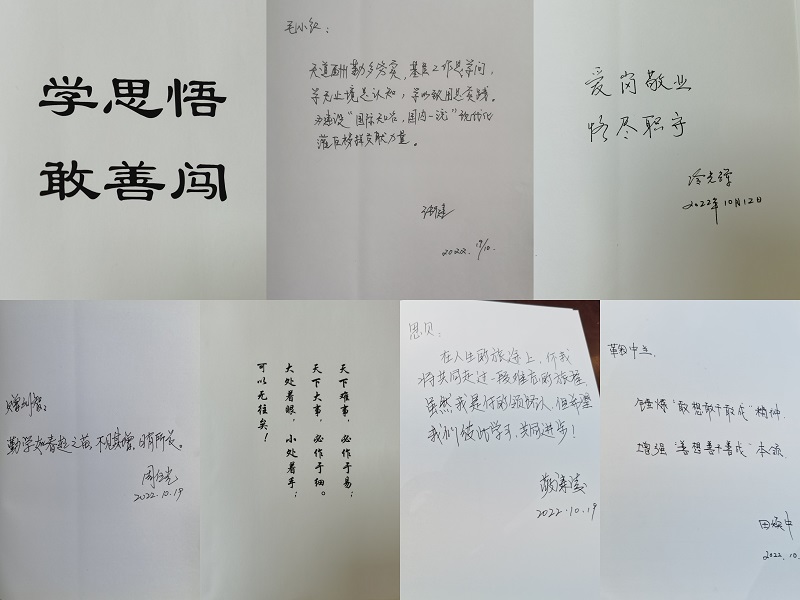 学思悟
敢善闯
毛小红：
天道酬勤多劳实，基层工作是学问，
学无止境是认知，学以致用是实践。
为建设“国际知名，国内一流”现代化
灌区榜样贡献力量。
2022.
爱岗敬业
恪尽职守
2022年10月12日
勤学如春起之苗，不见其增，日有所长。
2022.10.19
天下难事，必作于易；
天下大事，必作于细。
大处着眼，小处着手；
可以无往矣！
思贝：
在人生的旅途上，你我
将共同走过一段难忘的旅程
虽然我是你的领路人，但希望
我们彼此学习，共同进步！
2022.10.19
锤炼“敢想敢干敢成”精神，
增强“善想善干善成”本领。
2022.10.